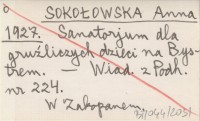 SOKOŁOWSKA Anna
1927. Sanatorjum dla
gruźliczych dzieci na Bys-
trem. — Wiad. z Podh.
nr 224.
W Zakopanem